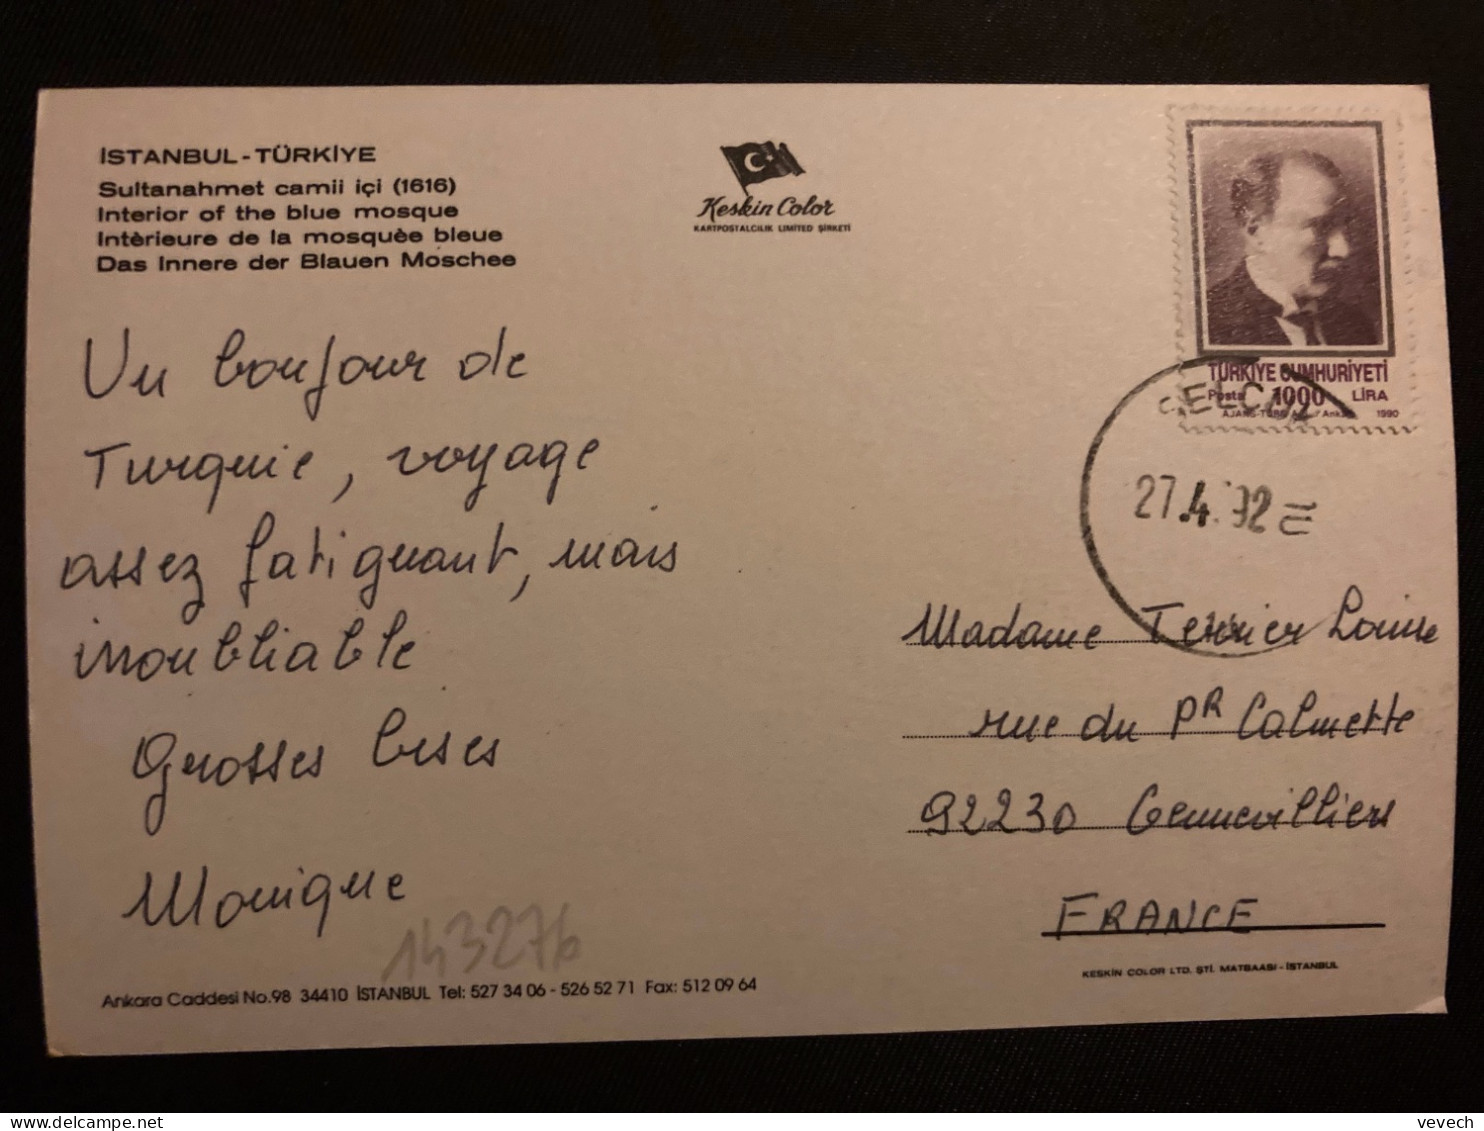 İSTANBUL - TÜRKİYE
Sultanahmet camii içi (1616)
Interior of the blue mosque
Intèrieure de la mosquèe bleue
Das Innere der Blauen Moschee
Keskin Color
KARTPOSTALCILIK LIMITED ŞİRKETİ
TÜRKİYE CUMHURİYETİ
Posta 1000 LİRA
1990
27.4.92
Un bonjour de
Turquie, voyage
assez fatiguant, mais
inoubliable
Grosses bises
Monique
143276
Madame Terrier Louise
rue du PR Calmette
92230 Gennevilliers
FRANCE
KESKİN COLOR LTD. ŞTİ. MATBAASI - İSTANBUL
Ankara Caddesi No.98 34410 İSTANBUL Tel: 527 34 06 - 526 52 71 Fax: 512 09 64
vevech